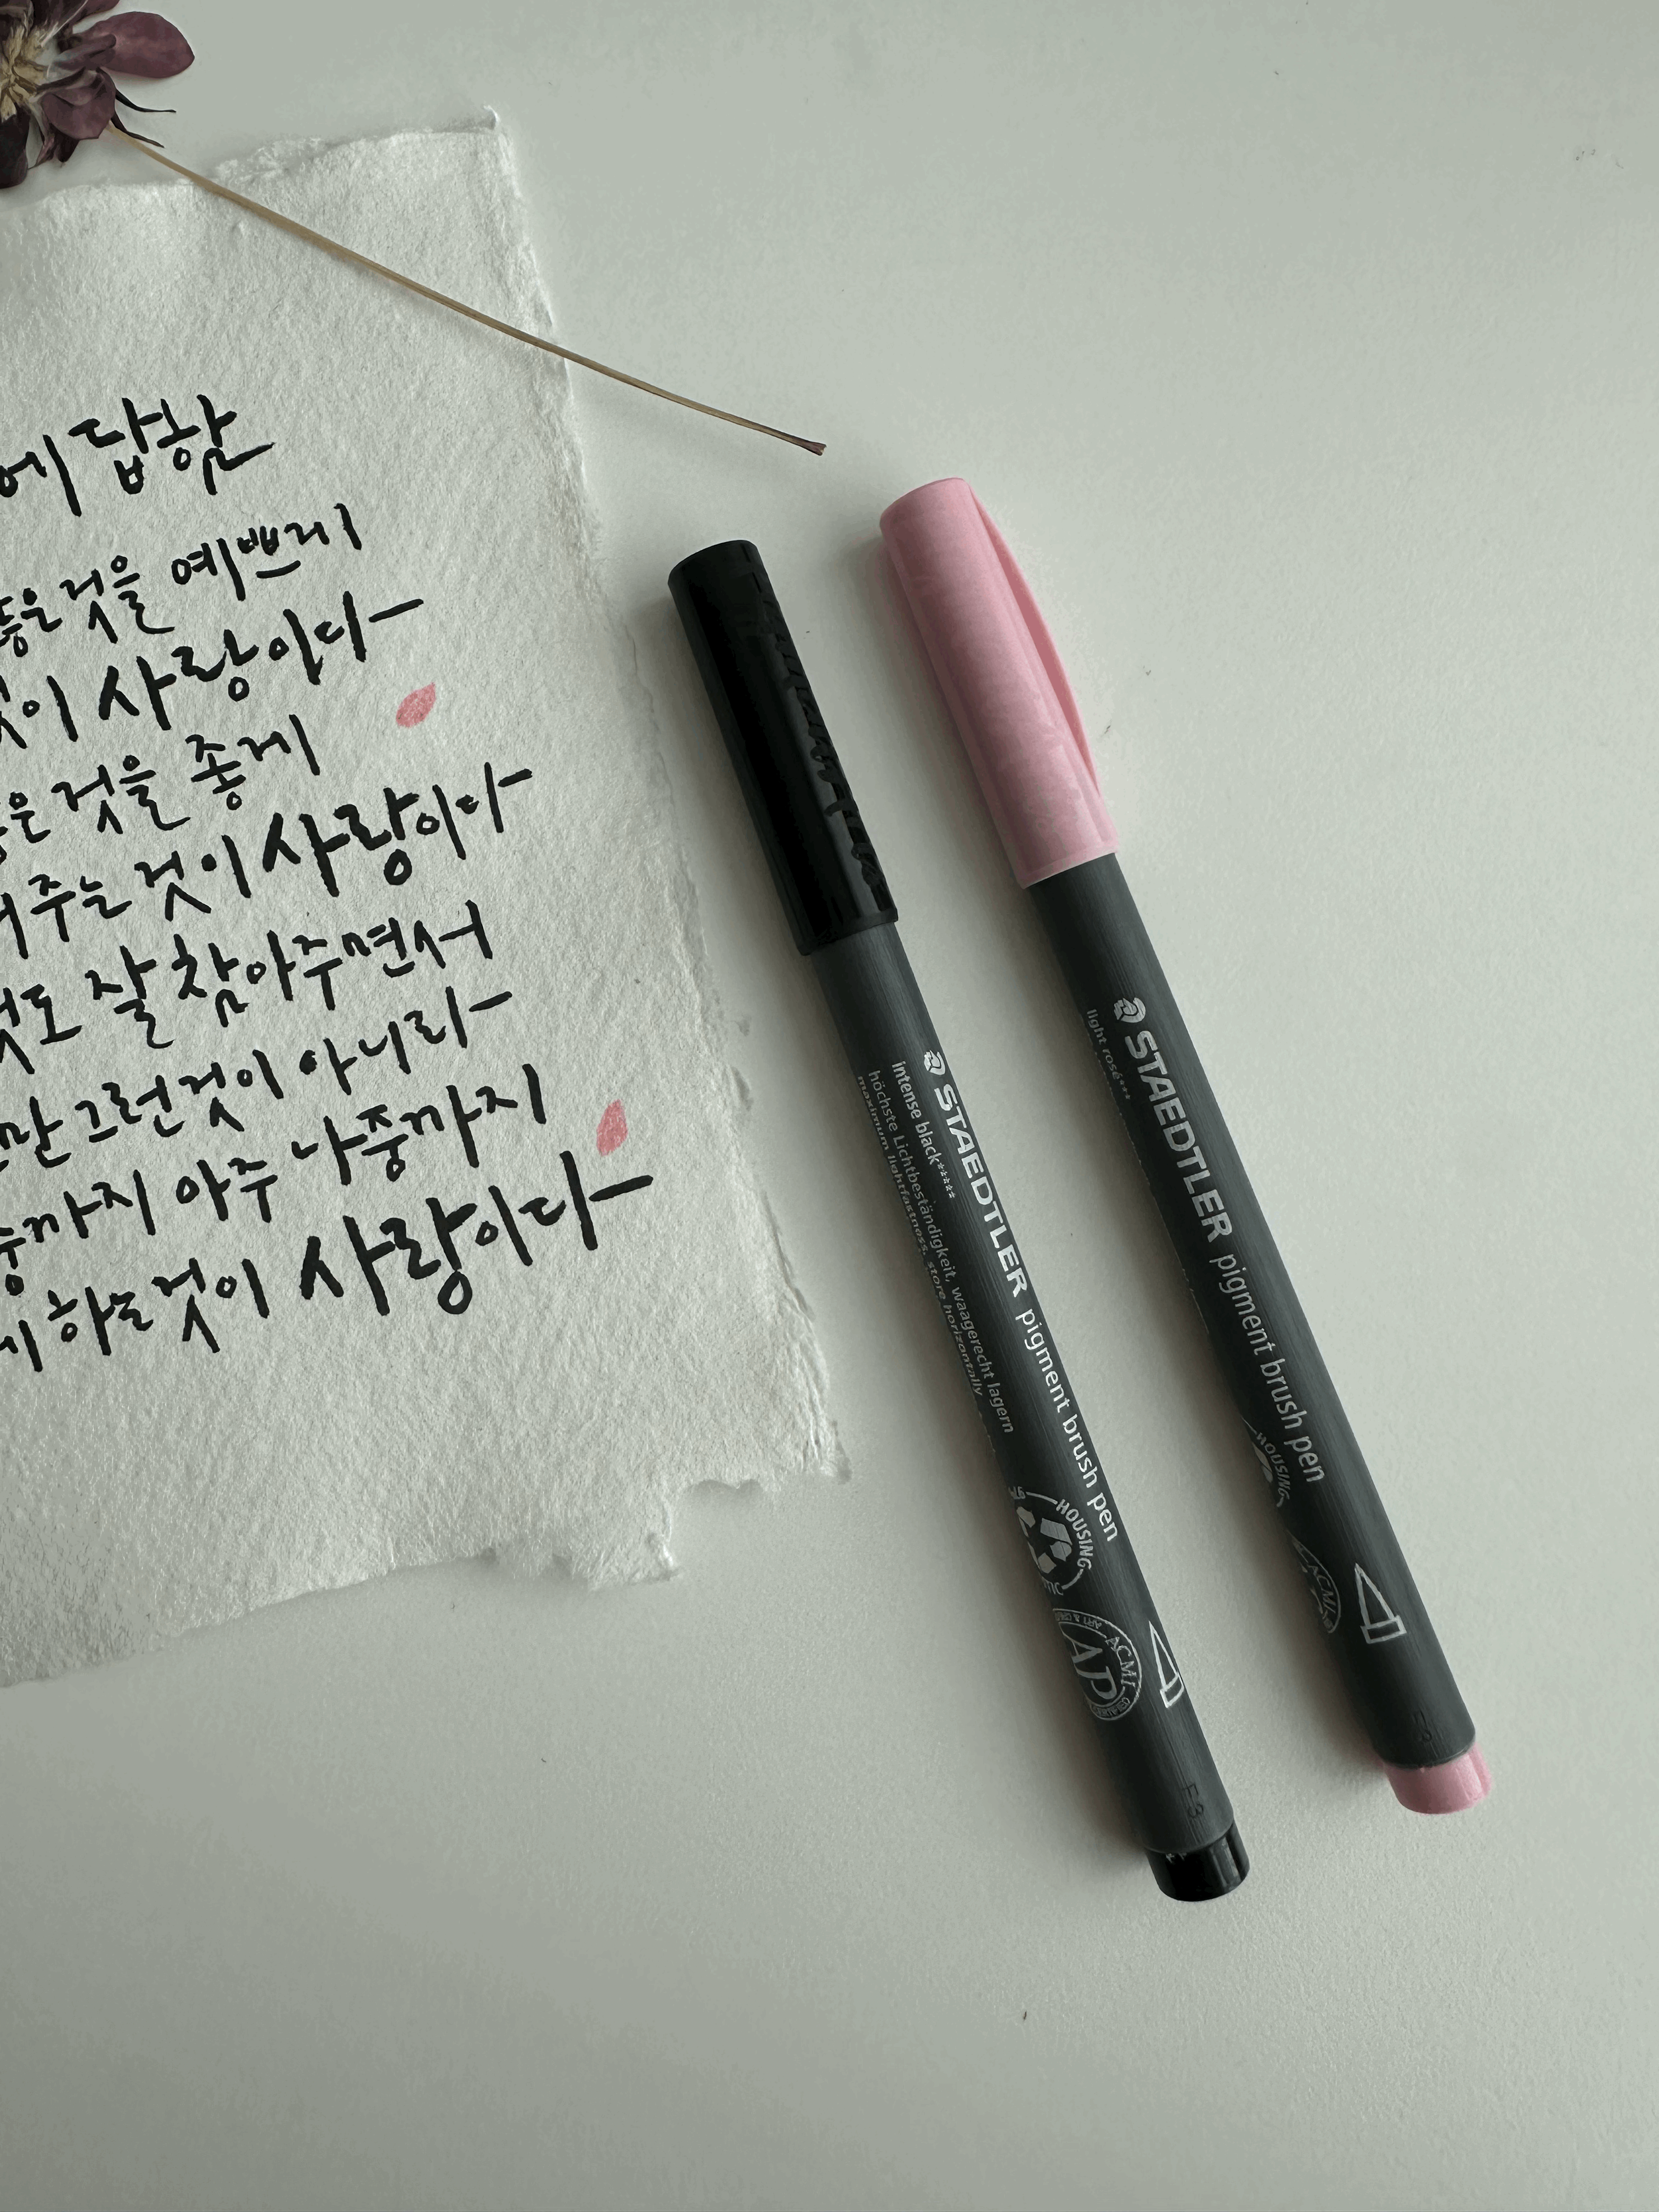 에 답함
좋은것을 예쁘게
것이 사랑이다
은 것을 좋게
주는 것이 사랑이다
것도 잘 참아주면서
만 그런것이 아니라
중까지 아주 나중까지
하는것이 사랑이다
STAEDTLER pigment brush pen
intense black*****
höchste Lichtbeständigkeit, waagerecht lagern
maximum lightfastness, store horizontally
HOUSING
ACMI
AP
CERTIFIED
F3
STAEDTLER pigment brush pen
light rosé***
HOUSING
ACMI